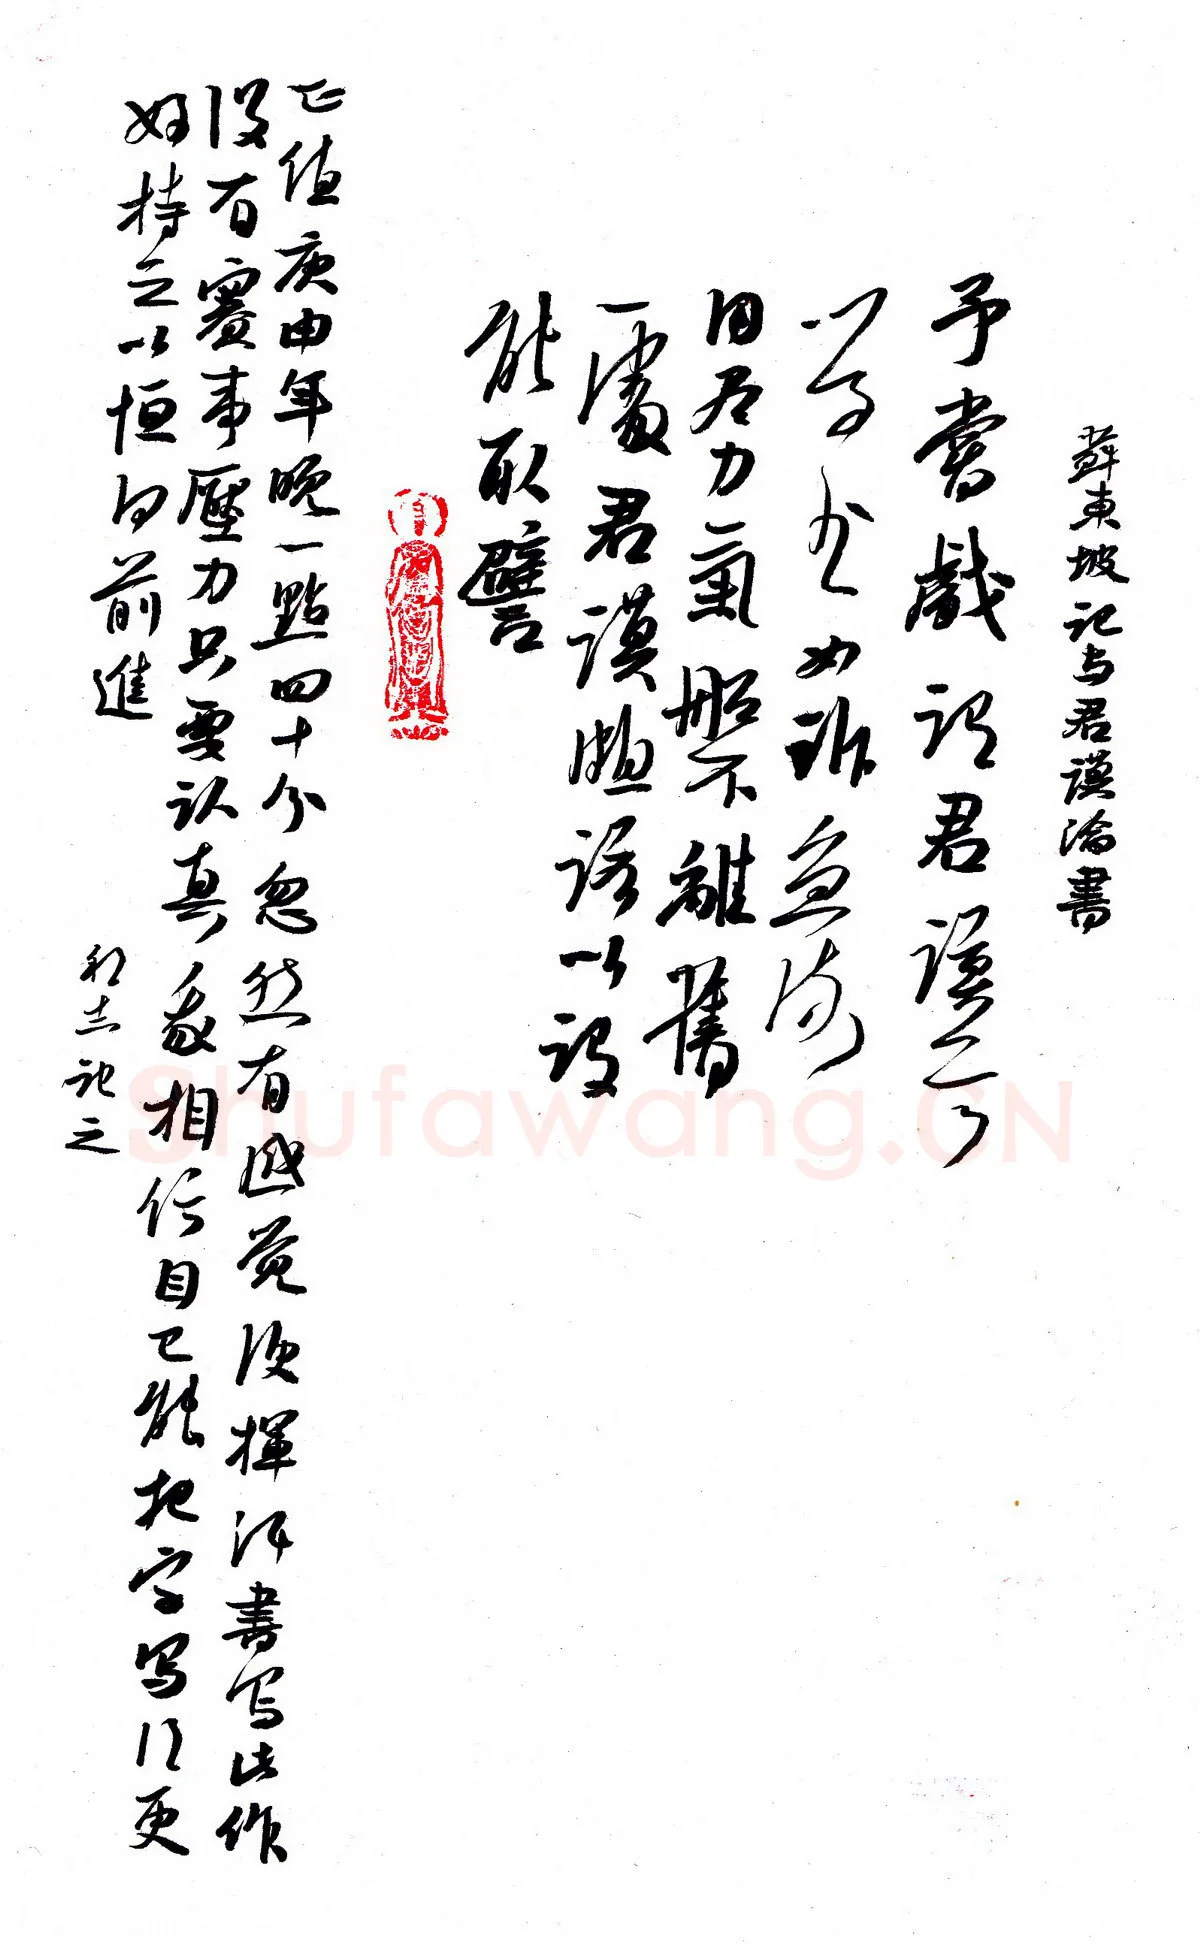 蘇東坡記与君謨論書
予嘗戲謂君謨言
学书如泝急流
用尽力氣船不離舊
處君謨頗諾以謂
能取譬
正值庚申年晚一點四十分忽然有感覚便揮汗書写此作
没有賽事壓力只要认真我相信自己能把字写得更
好持之以恒向前進
和志記之
Shufawang.CN